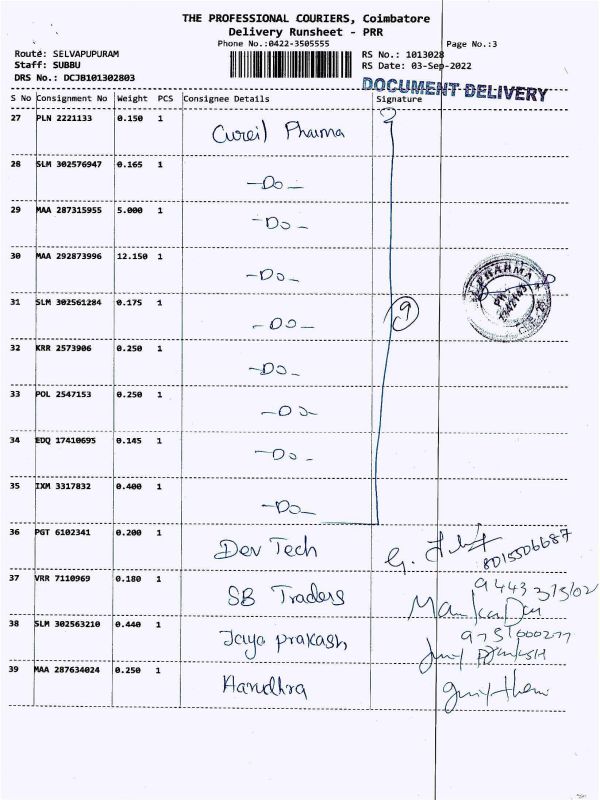 THE PROFESSIONAL COURIERS, Coimbatore
Delivery Runsheet - PRR
Phone No.:0422-3505555
Page No.:3
Route: SELVAPUPURAM
RS No.: 1013028
Staff: SUBBU
RS Date: 03-Sep-2022
DRS No.: DCJB101302803
DOCUMENT DELIVERY
S No Consignment No Weight PCS Consignee Details Signature
27 PLN 2221133 0.150 1 Cureil Pharma
28 SLM 302576947 0.165 1 -Do-
29 MAA 287315955 5.000 1 -Do-
30 MAA 292873996 12.150 1 -Do-
PHARMA
31 SLM 302561284 0.175 1 -Do- 9
32 KRR 2573906 0.250 1 -Do-
33 POL 2547153 0.250 1 -Do-
34 EDQ 17410695 0.145 1 -Do-
35 IXM 3317832 0.400 1 -Do-
36 PGT 6102341 0.200 1 Dev Tech G. 8015506687
37 VRR 7110969 0.180 1 SB Traders 9443 31502
38 SLM 302563210 0.440 1 Jaya prakash
39 MAA 287634024 0.250 1 Harudhra